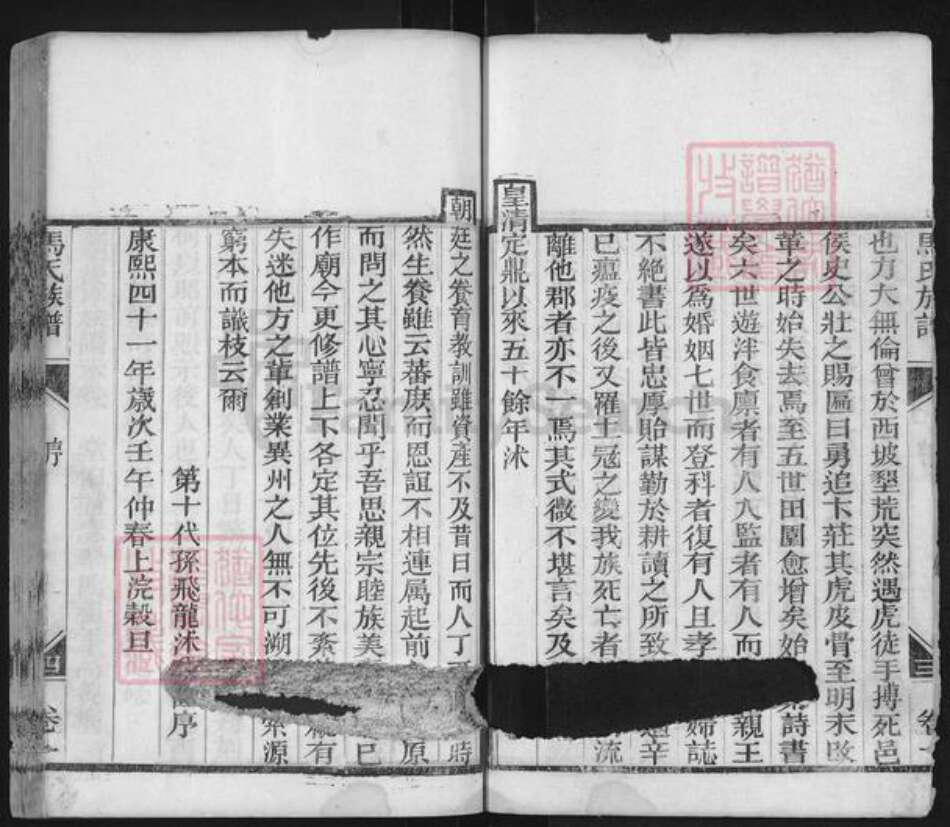 馬氏族譜
也方大無倫曾於西坡墾荒突然遇虎徒手搏死邑
侯史公壯之賜匾曰勇追卞莊其虎皮骨至明末改
革之時始失去焉至五世田園愈增矣始 詩書
矣六世遊泮食廩者有人入監者有人而 親王
遂以爲婚姻七世而登科者復有人且孝 婦誌
不絶書此皆忠厚貽謀勤於耕讀之所致 辛
巳瘟疫之後又罹土冦之變我族死亡者 流
離他郡者亦不一焉其式微不堪言矣及
皇清定鼎以來五十餘年沐
三
卷
朝廷之養育教訓雖資產不及昔日而人丁 時
然生養雖云蕃庶而恩誼不相連屬起前 原
而問之其心寧忍聞乎吾思親宗睦族美 已
作廟今更修譜上下各定其位先後不紊 有
失迷他方之軰創業異州之人無不可溯 索源
窮本而識枝云爾
第十代孫飛龍沐 序
康熙四十一年歲次壬午仲春上浣穀旦
馬氏族譜
序
四
卷
FamilySearch